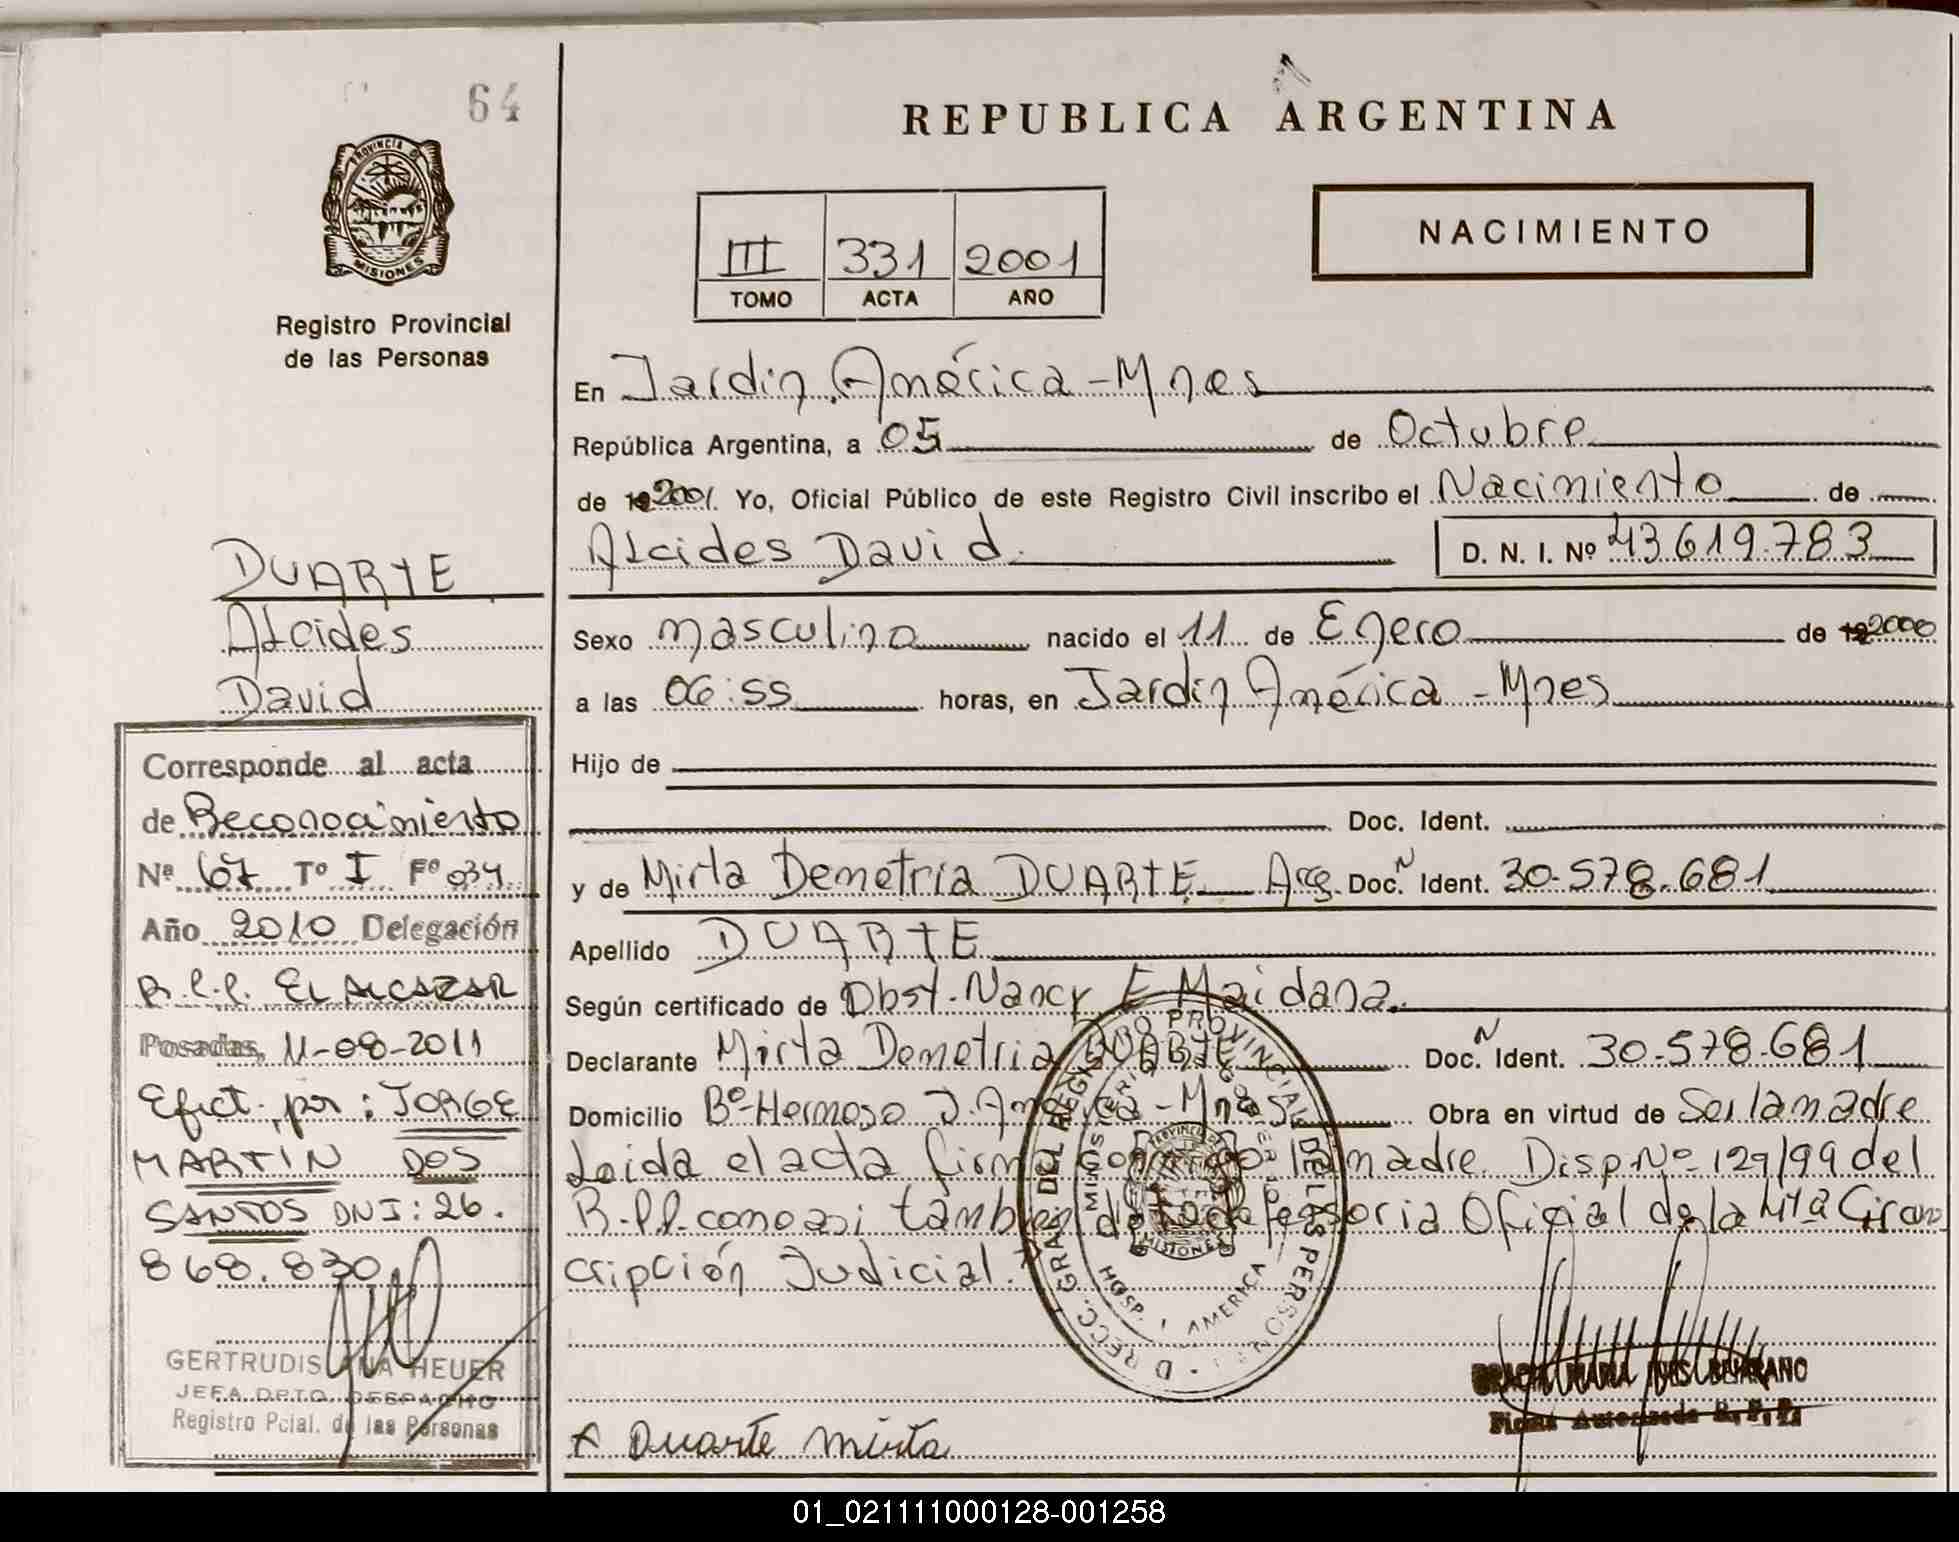 64
PROVINCIA DE
MISIONES
Registro Provincial
de las Personas
REPUBLICA ARGENTINA
III 331 2001
TOMO ACTA AÑO
NACIMIENTO
En Jardin América - Mnes
República Argentina, a 05 de Octubre
de 19 2001. Yo, Oficial Público de este Registro Civil inscribo el Nacimiento de
Alcides David. D. N. I. Nº 43.619.783
Sexo masculino nacido el 11 de Enero de 19 2000
a las 06:55 horas, en Jardin América - Mnes
Hijo de
Doc. Ident.
y de Mirta Demetria DUARTE Arg. Doc. N Ident. 30.578.681
Apellido DUARTE
Según certificado de Obst. Nancy E Maidana.
Declarante Mirta Demetria DUARTE Doc. N Ident. 30.578.681
Domicilio Bº Hermoso J. América - Mnes Obra en virtud de Ser la madre
Leida el acta firma conmigo la madre. Disp. Nº 129/99 del
R.P.P. como asi tambien de la defensoria Oficial de la IVta Circuns
cripción Judicial.
DUARTE
Alcides
David
Corresponde al acta
de Reconocimiento
Nº 67 Tº I Fº 034
Año 2010 Delegación
R.P.P. EL ALCAZAR
Posadas, 11-08-2011
Efect. por: JORGE
MARTIN DOS
SANTOS DNI: 26.
868.830
GERTRUDIS ANA HEUER
JEFA DPTO. DESPACHO
Registro Pcial. de las Personas
DIRECC. GRAL. DEL REGISTRO PROVINCIAL DE LAS PERSONAS
MINISTERIO DE GOBIERNO
PROVINCIA DE
MISIONES
HOSP. J. AMERICA
MARIA INES BEJARANO
Firma Autorizada R.P.P.
Duarte mirta
01_021111000128-001258